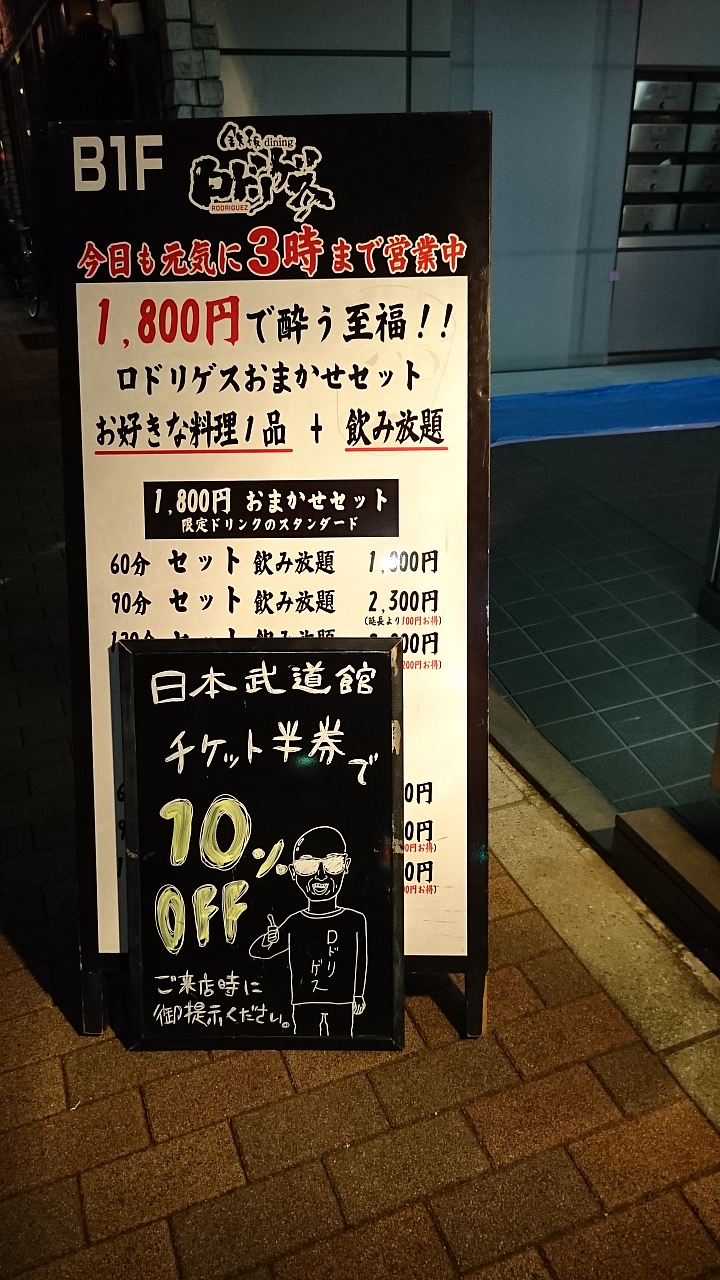 B1F
鉄板dining
ロドリゲス
RODRIGUEZ
今日も元気に3時まで営業中
1,800円で酔う至福!!
ロドリゲスおまかせセット
お好きな料理1品 + 飲み放題
1,800円 おまかせセット
限定ドリンクのスタンダード
60分 セット 飲み放題 1,800円
90分 セット 飲み放題 2,300円
(延長より100円お得)
セット 飲み放題 00円
200円お得)
0円
0円
0円お得)
0円
0円お得)
日本武道館
チケット半券で
10%
OFF
ロドリゲス
ご来店時に
御提示ください。